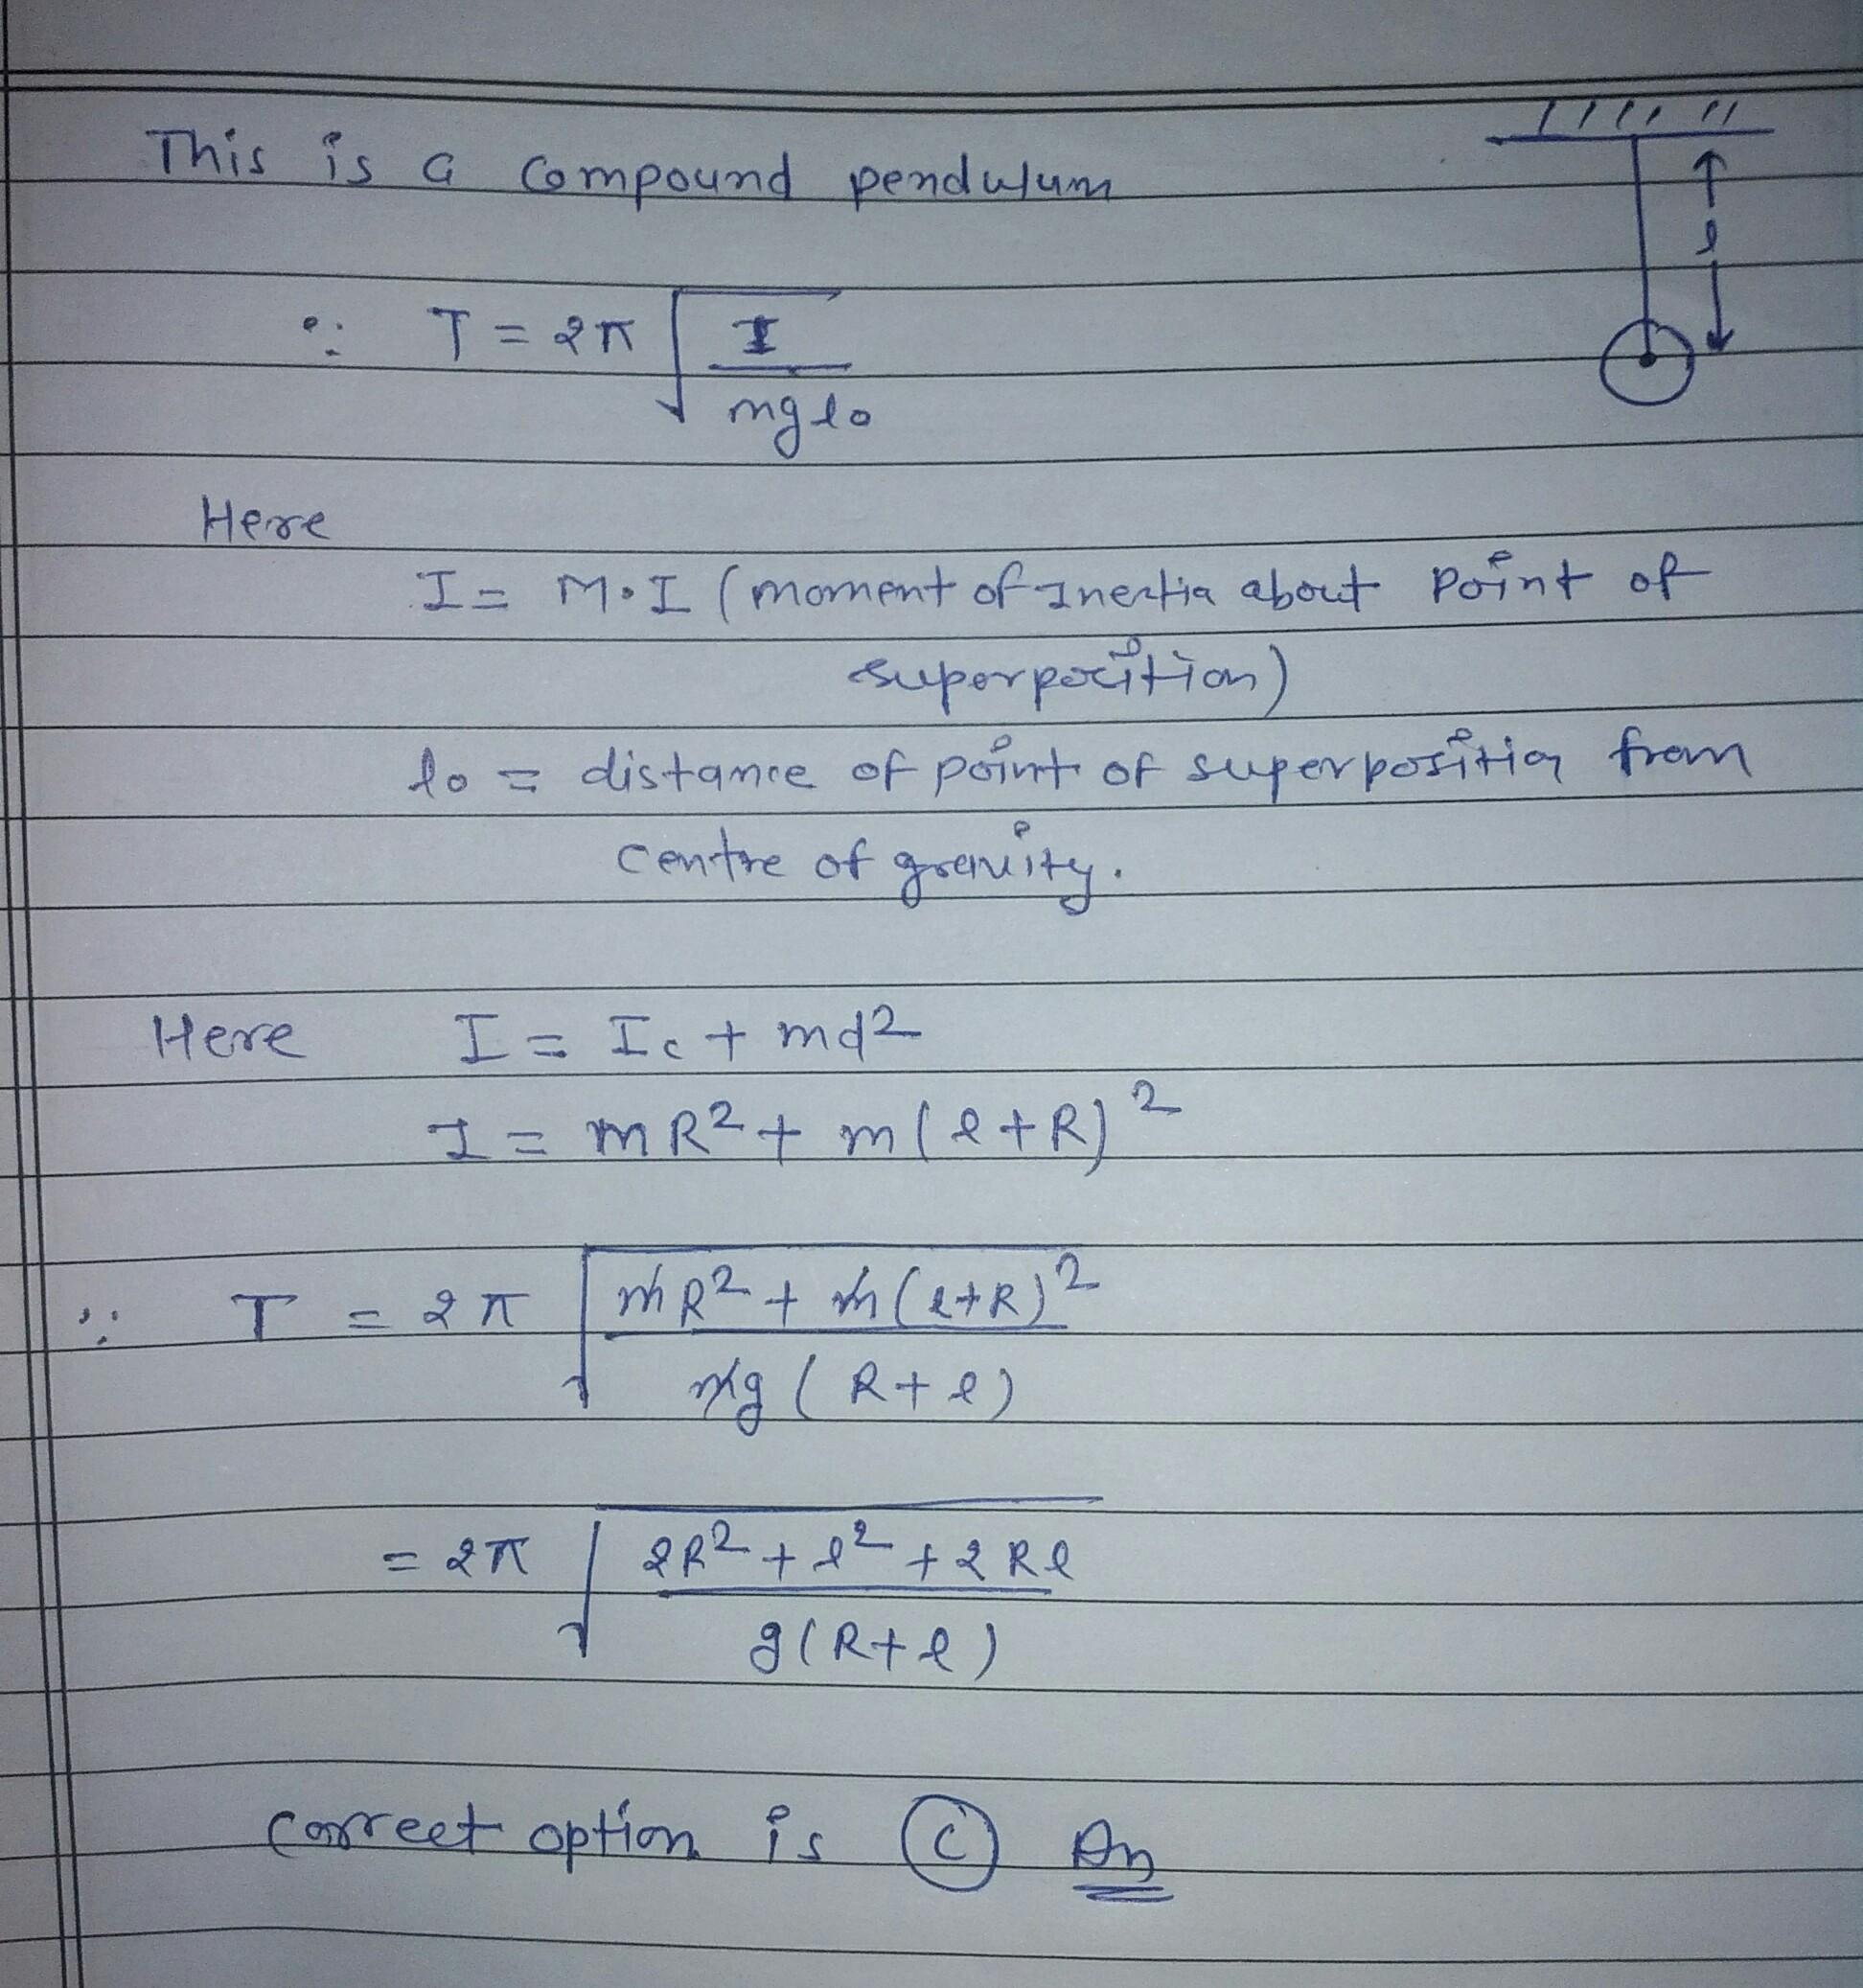 This is a compound pendulum
l
∵ T = 2π √(I / mgl₀)
Here
I = M.I (moment of Inertia about Point of
superposition)
l₀ = distance of point of superposition from
centre of gravity.
Here I = Ic + md²
I = mR² + m(l+R)²
∵ T = 2π √(mR² + m(l+R)² / mg(R+l))
= 2π √(2R² + l² + 2Rl / g(R+l))
correct option is (C) An